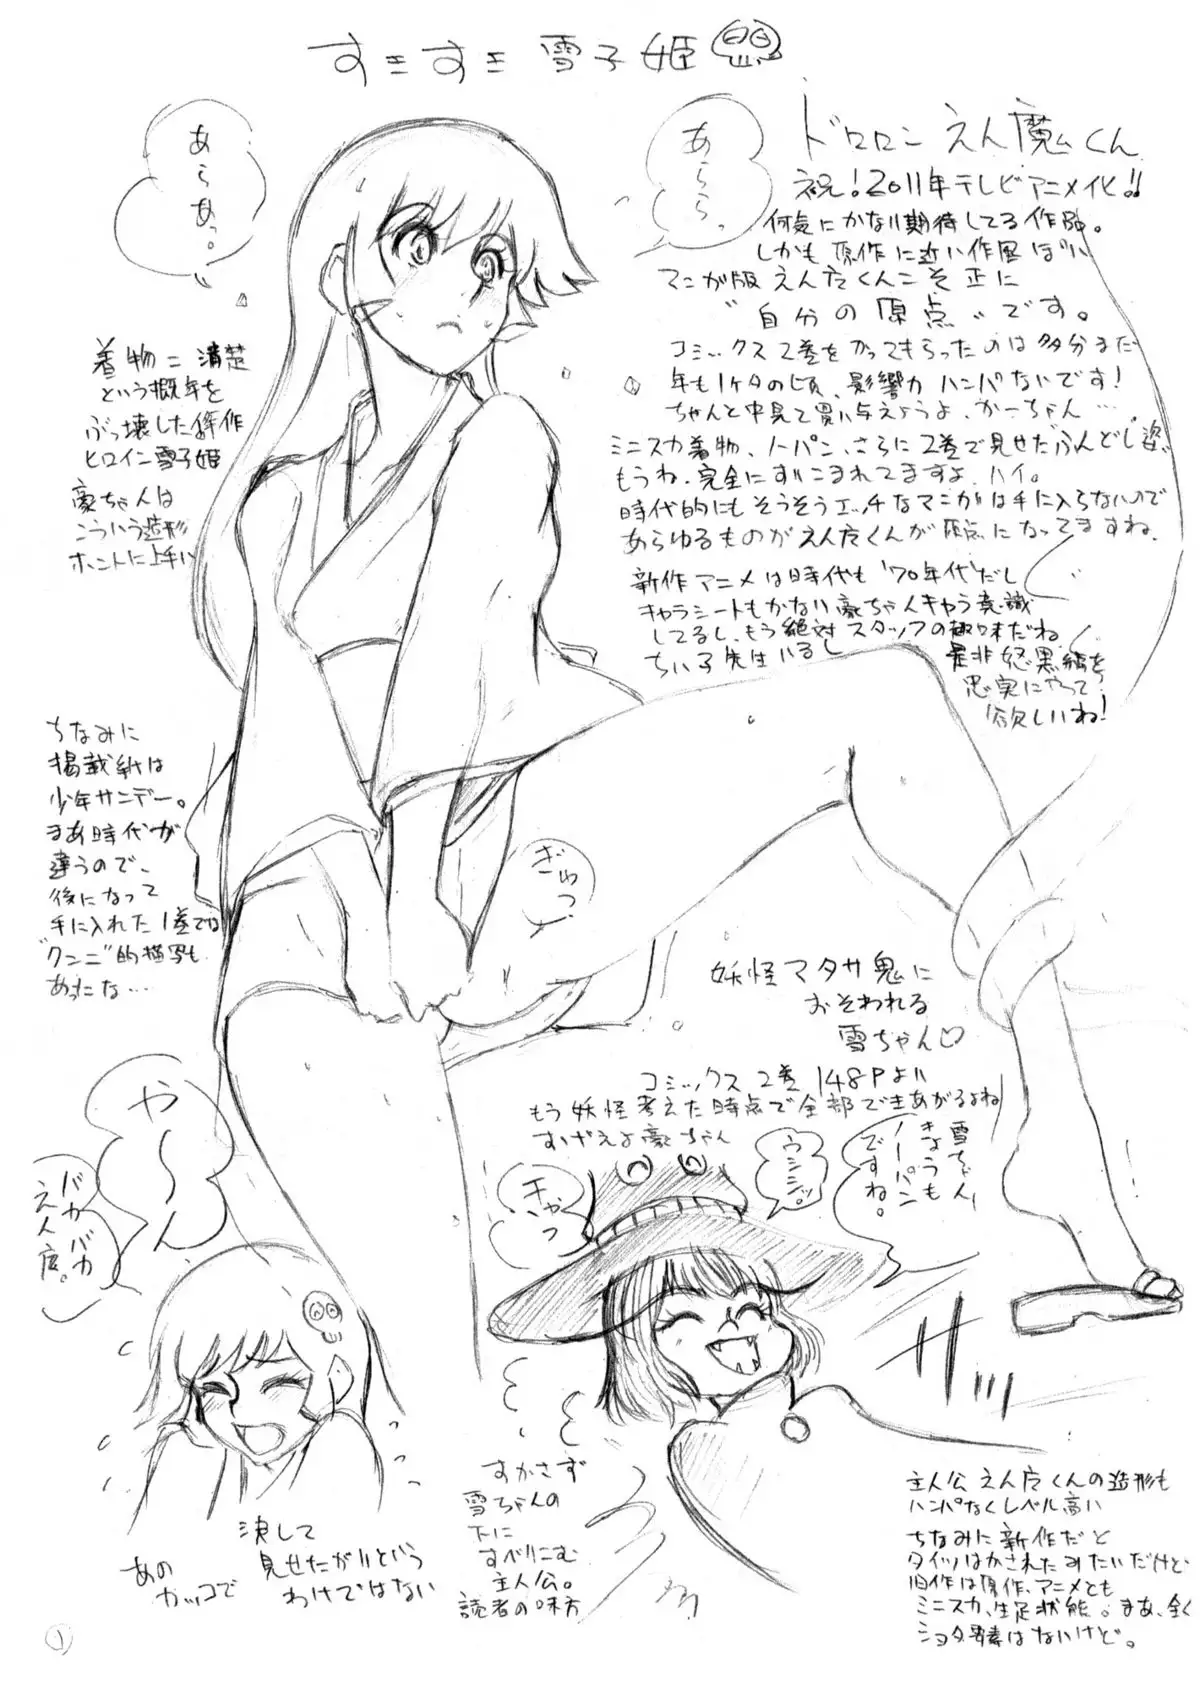 すきすき雪子姫
あらあっ。
あらら。
ドロロンえん魔くん
祝!2011年テレビアニメ化!!
何気にかなり期待してる作品。
しかも原作に近い作風ぽい
マンガ版えん魔くんこそ正に
〝自分の原点〟です。
コミックス2巻をかってもらったのは多分まだ
年も1ケタの頃、影響力ハンパないです!
ちゃんと中見て買い与えようよ、かーちゃん…
ミニスカ着物、ノーパン、さらに2巻で見せたふんどし姿、
もうね、完全にすりこまれてますよ、ハイ。
時代的にもそうそうエッチなマンガは手に入らないので
あらゆるものがえん魔くんが原点になってますね、
新作アニメは時代も'70年代だし
キャラシートもかない豪ちゃんキャラ意識
してるし、もう絶対スタッフの趣味だね
ちい子先生いるし
是非
忠実にやって
欲しいね!
着物=清楚
という概念を
ぶっ壊した傑作
ヒロイン雪子姫
豪ちゃんは
こういう造形
ホントに上手い
ちなみに
掲載紙は
少年サンデー。
まあ時代が
違うので、
後になって
手に入れた1巻では
〝クンニ〟的描写も
あったな…
ぎゅっ
妖怪マタサ鬼に
おそわれる
雪ちゃん♡
コミックス2巻148Pより
もう妖怪考えた時点で全部できあがるよね
すげえよ豪ちゃん
雪でん、
きょうも
ノーパン
ですね。
ウシシッ。
きゃっ
や〜ん
バカバカ
えん魔。
ザッ
すかさず
雪ちゃんの
下に
すべりこむ
主人公。
読者の味方
決して
見せたがりという
わけではない
あの
カッコで
主人公えん魔くんの造形も
ハンパなくレベル高い
ちなみに新作だと
タイツはかされたみたいだけど
旧作は原作、アニメとも
ミニスカ、生足状態。まあ、全く
ショタ要素はないけど。
1